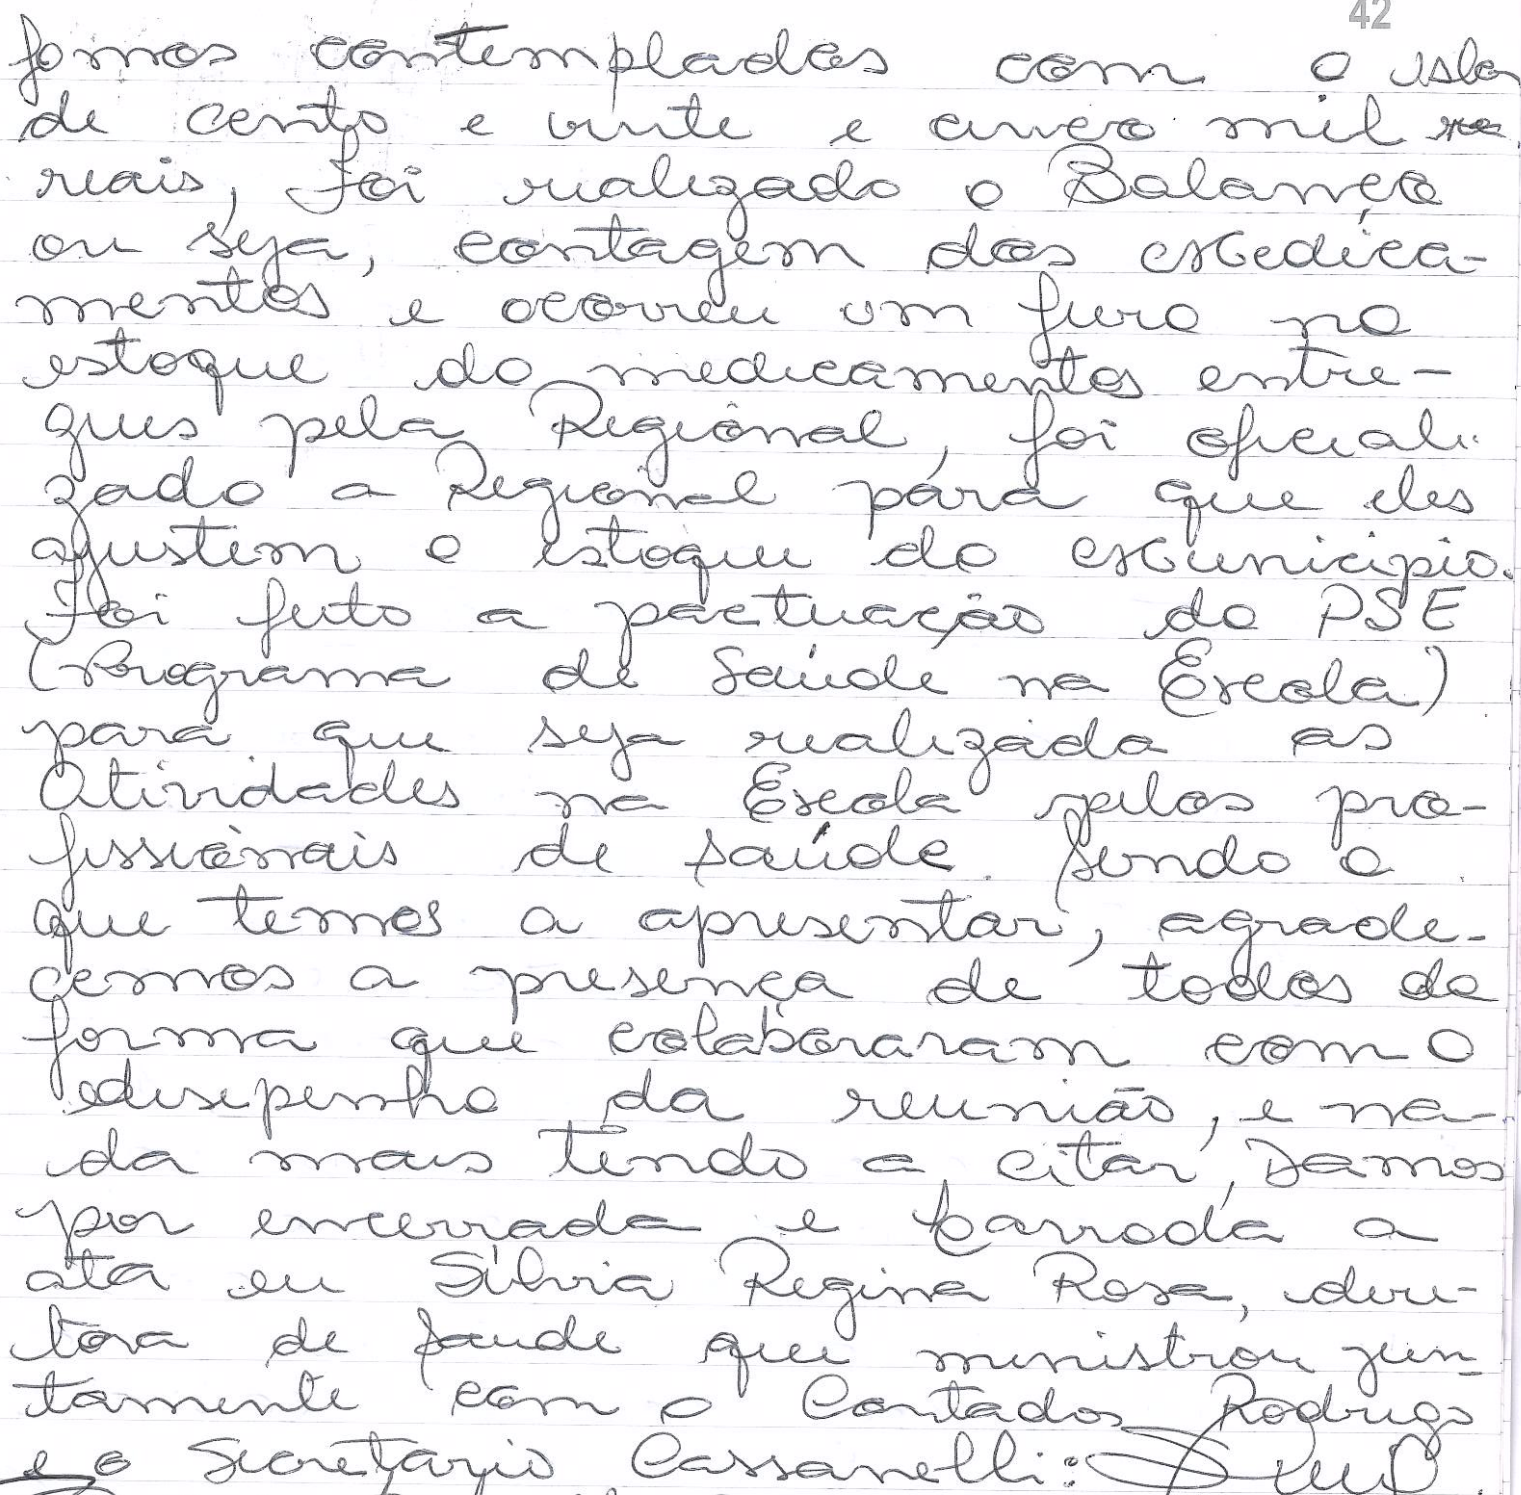 42
fomos contemplados com o valor
de cento e vinte e cinco mil
reais, foi realizado o Balanço
ou seja, contagem dos Medica-
mentos e ocorreu um furo no
estoque do medicamentos entre-
gues pela Regional, foi oficiali-
zado a Regional para que eles
ajustem o estoque do Município.
Foi feito a pactuação do PSE
(Programa de Saúde na Escola)
para que seja realizada as
Atividades na Escola pelos pro-
fissionais de saúde. Sendo o
que temos a apresentar, agrade-
cemos a presença de todos da
forma que colaboraram com o
desepenho da reunião, e na-
da mais tendo a citar, Damos
por encerrada e a
ata eu Silvia Regina Rosa, dire-
tora de saude que ministrou jun-
tamente com o Contador Rodrigo
e o Secretário Cassanelli: